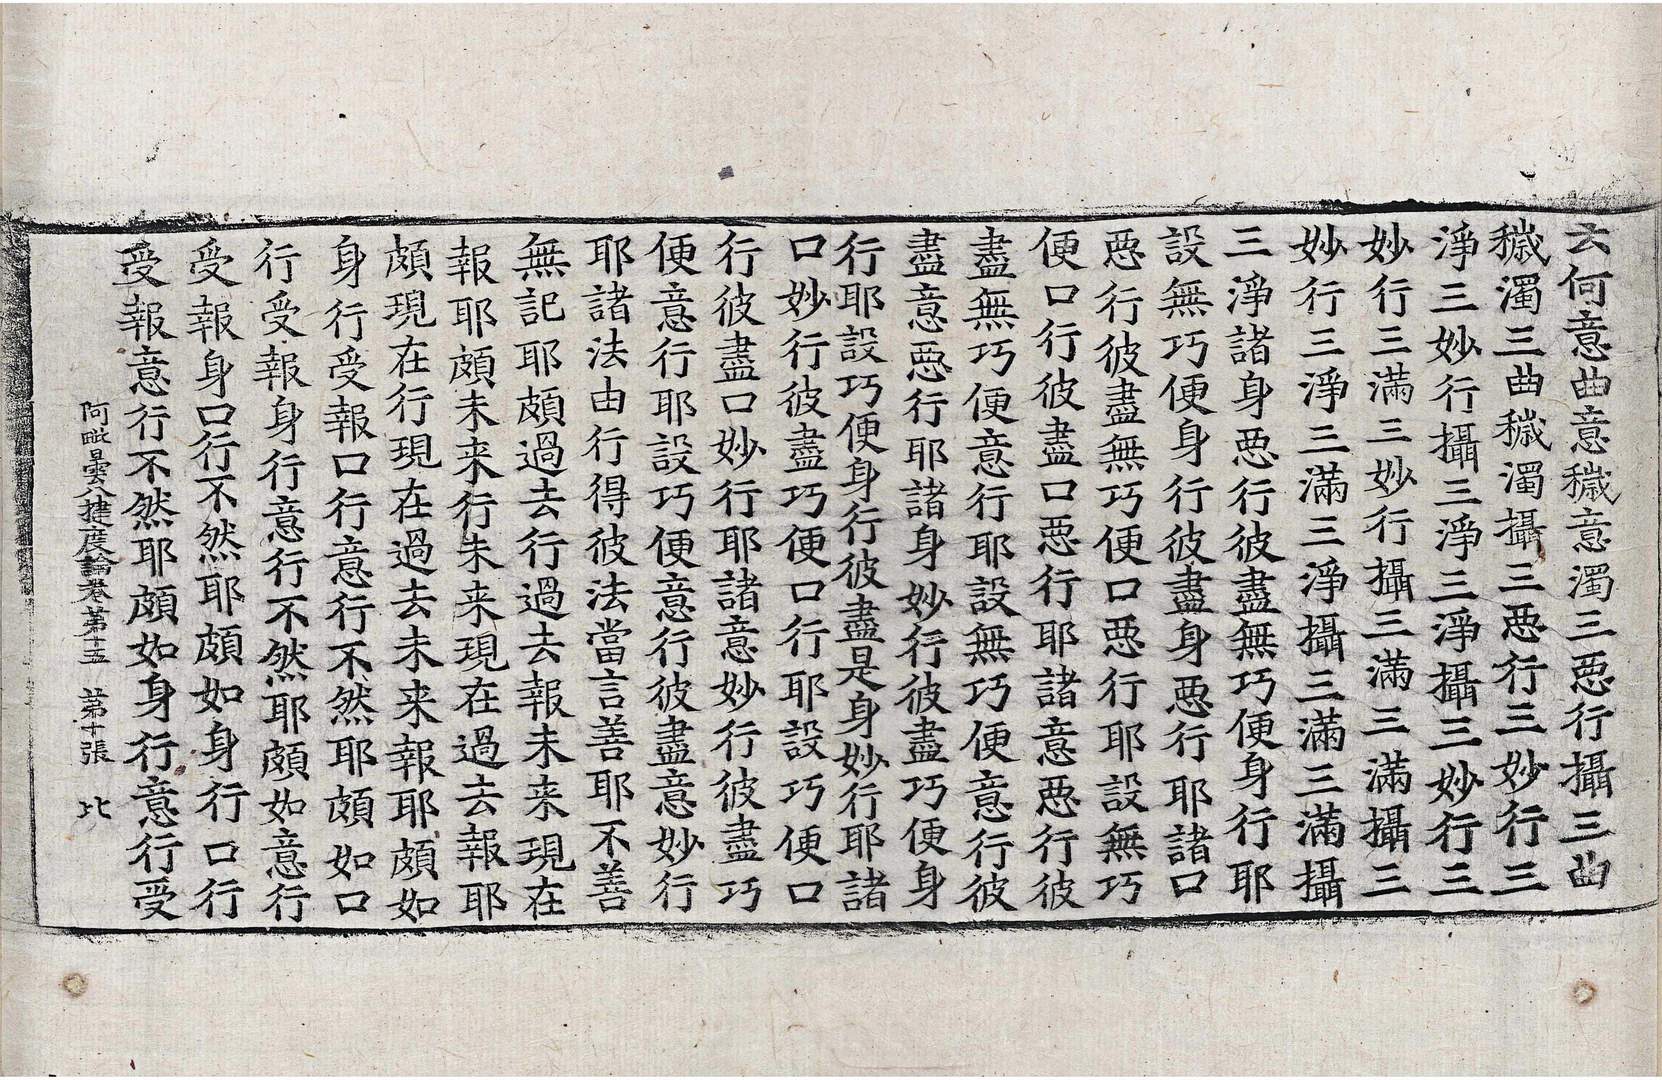 云何意曲意穢意濁三惡行攝三曲
穢濁三曲穢濁攝三惡行三妙行三
淨三妙行攝三淨三淨攝三妙行三
妙行三滿三妙行攝三滿三滿攝三
妙行三淨三滿三淨攝三滿三滿攝
三淨諸身惡行彼盡無巧便身行耶
設無巧便身行彼盡身惡行耶諸口
惡行彼盡無巧便口惡行耶設無巧
便口行彼盡口惡行耶諸意惡行彼
盡無巧便意行耶設無巧便意行彼
盡意惡行耶諸身妙行彼盡巧便身
行耶設巧便身行彼盡是身妙行耶諸
口妙行彼盡巧便口行耶設巧便口
行彼盡口妙行耶諸意妙行彼盡巧
便意行耶設巧便意行彼盡意妙行
耶諸法由行得彼法當言善耶不善
無記耶頗過去行過去報未来現在
報耶頗未来行未来現在過去報耶
頗現在行現在過去未来報耶頗如
身行受報口行意行不然耶頗如口
行受報身行意行不然耶頗如意行
受報身口行不然耶頗如身行口行
受報意行不然耶頗如身行意行受
阿毗曇八揵度論卷第十五　第十張　比